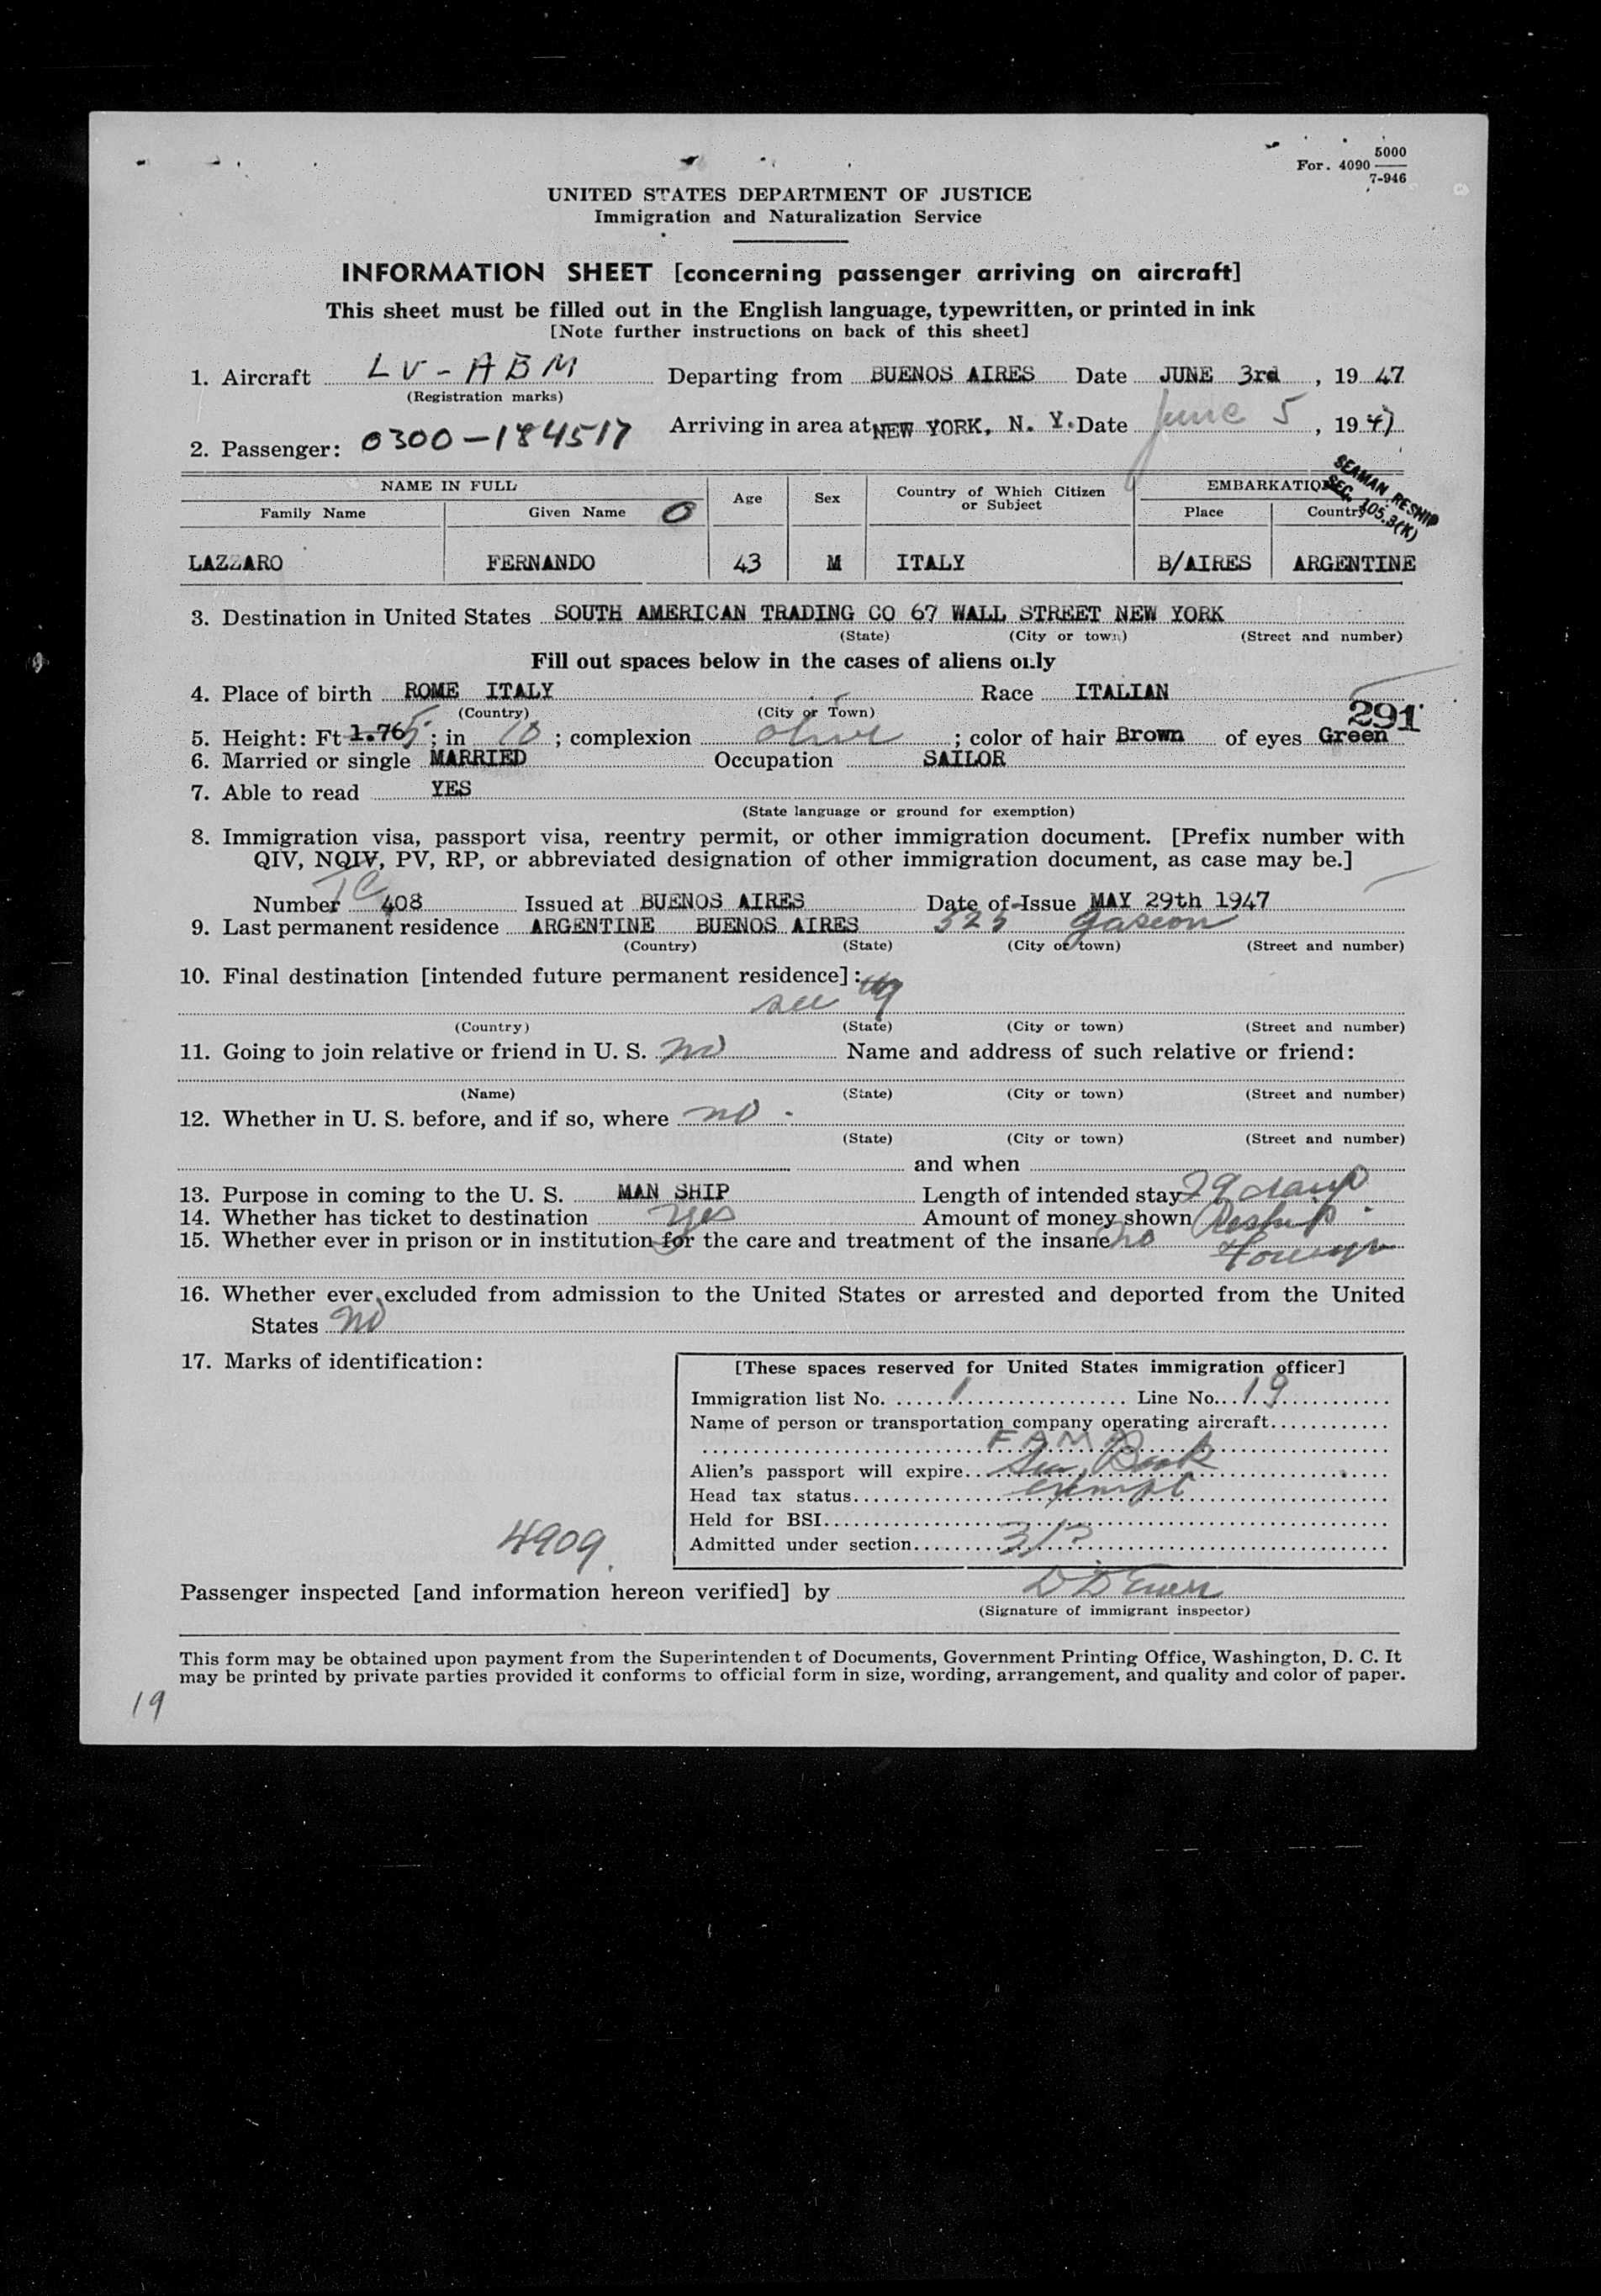 For. 4090 5000
7-946
UNITED STATES DEPARTMENT OF JUSTICE
Immigration and Naturalization Service
INFORMATION SHEET [concerning passenger arriving on aircraft]
This sheet must be filled out in the English language, typewritten, or printed in ink
[Note further instructions on back of this sheet]
1. Aircraft LV-ABM Departing from BUENOS AIRES Date JUNE 3rd, 1947
(Registration marks)
Arriving in area at NEW YORK, N. Y. Date June 5, 1947
2. Passenger: 0300-184517
SEAMAN RESHIP
SEC. 105.3(K)
NAME IN FULL Age Sex Country of Which Citizen or Subject EMBARKATION
Family Name Given Name O Place Country
LAZZARO FERNANDO 43 M ITALY B/AIRES ARGENTINE
3. Destination in United States SOUTH AMERICAN TRADING CO 67 WALL STREET NEW YORK
(State) (City or town) (Street and number)
Fill out spaces below in the cases of aliens only
4. Place of birth ROME ITALY Race ITALIAN
(Country) (City or Town)
291
5. Height: Ft 1.76 5; in 10; complexion olive; color of hair Brown of eyes Green
6. Married or single MARRIED Occupation SAILOR
7. Able to read YES
(State language or ground for exemption)
8. Immigration visa, passport visa, reentry permit, or other immigration document. [Prefix number with
QIV, NQIV, PV, RP, or abbreviated designation of other immigration document, as case may be.]
Number TC 408 Issued at BUENOS AIRES Date of Issue MAY 29th 1947
9. Last permanent residence ARGENTINE BUENOS AIRES 525 gascon
(Country) (State) (City or town) (Street and number)
10. Final destination [intended future permanent residece]:
see
(Country) (State) (City or town) (Street and number)
11. Going to join relative or friend in U. S. no Name and address of such relative or friend:
(Name) (State) (City or town) (Street and number)
12. Whether in U. S. before, and if so, where no.
(State) (City or town) (Street and number)
and when
13. Purpose in coming to the U. S. MAN SHIP Length of intended stay 29 days
14. Whether has ticket to destination yes Amount of money shown Reship
15. Whether ever in prison or in institution for the care and treatment of the insane no
16. Whether ever excluded from admission to the United States or arrested and deported from the United
States no
17. Marks of identification:
[These spaces reserved for United States immigration officer]
Immigration list No. 1 Line No. 19
Name of person or transportation company operating aircraft
FAMA
Alien's passport will expire Sea Book
Head tax status exempt
Held for BSI
Admitted under section
4909.
Passenger inspected [and information hereon verified] by
(Signature of immigrant inspector)
This form may be obtained upon payment from the Superintendent of Documents, Government Printing Office, Washington, D. C. It
may be printed by private parties provided it conforms to official form in size, wording, arrangement, and quality and color of paper.
19